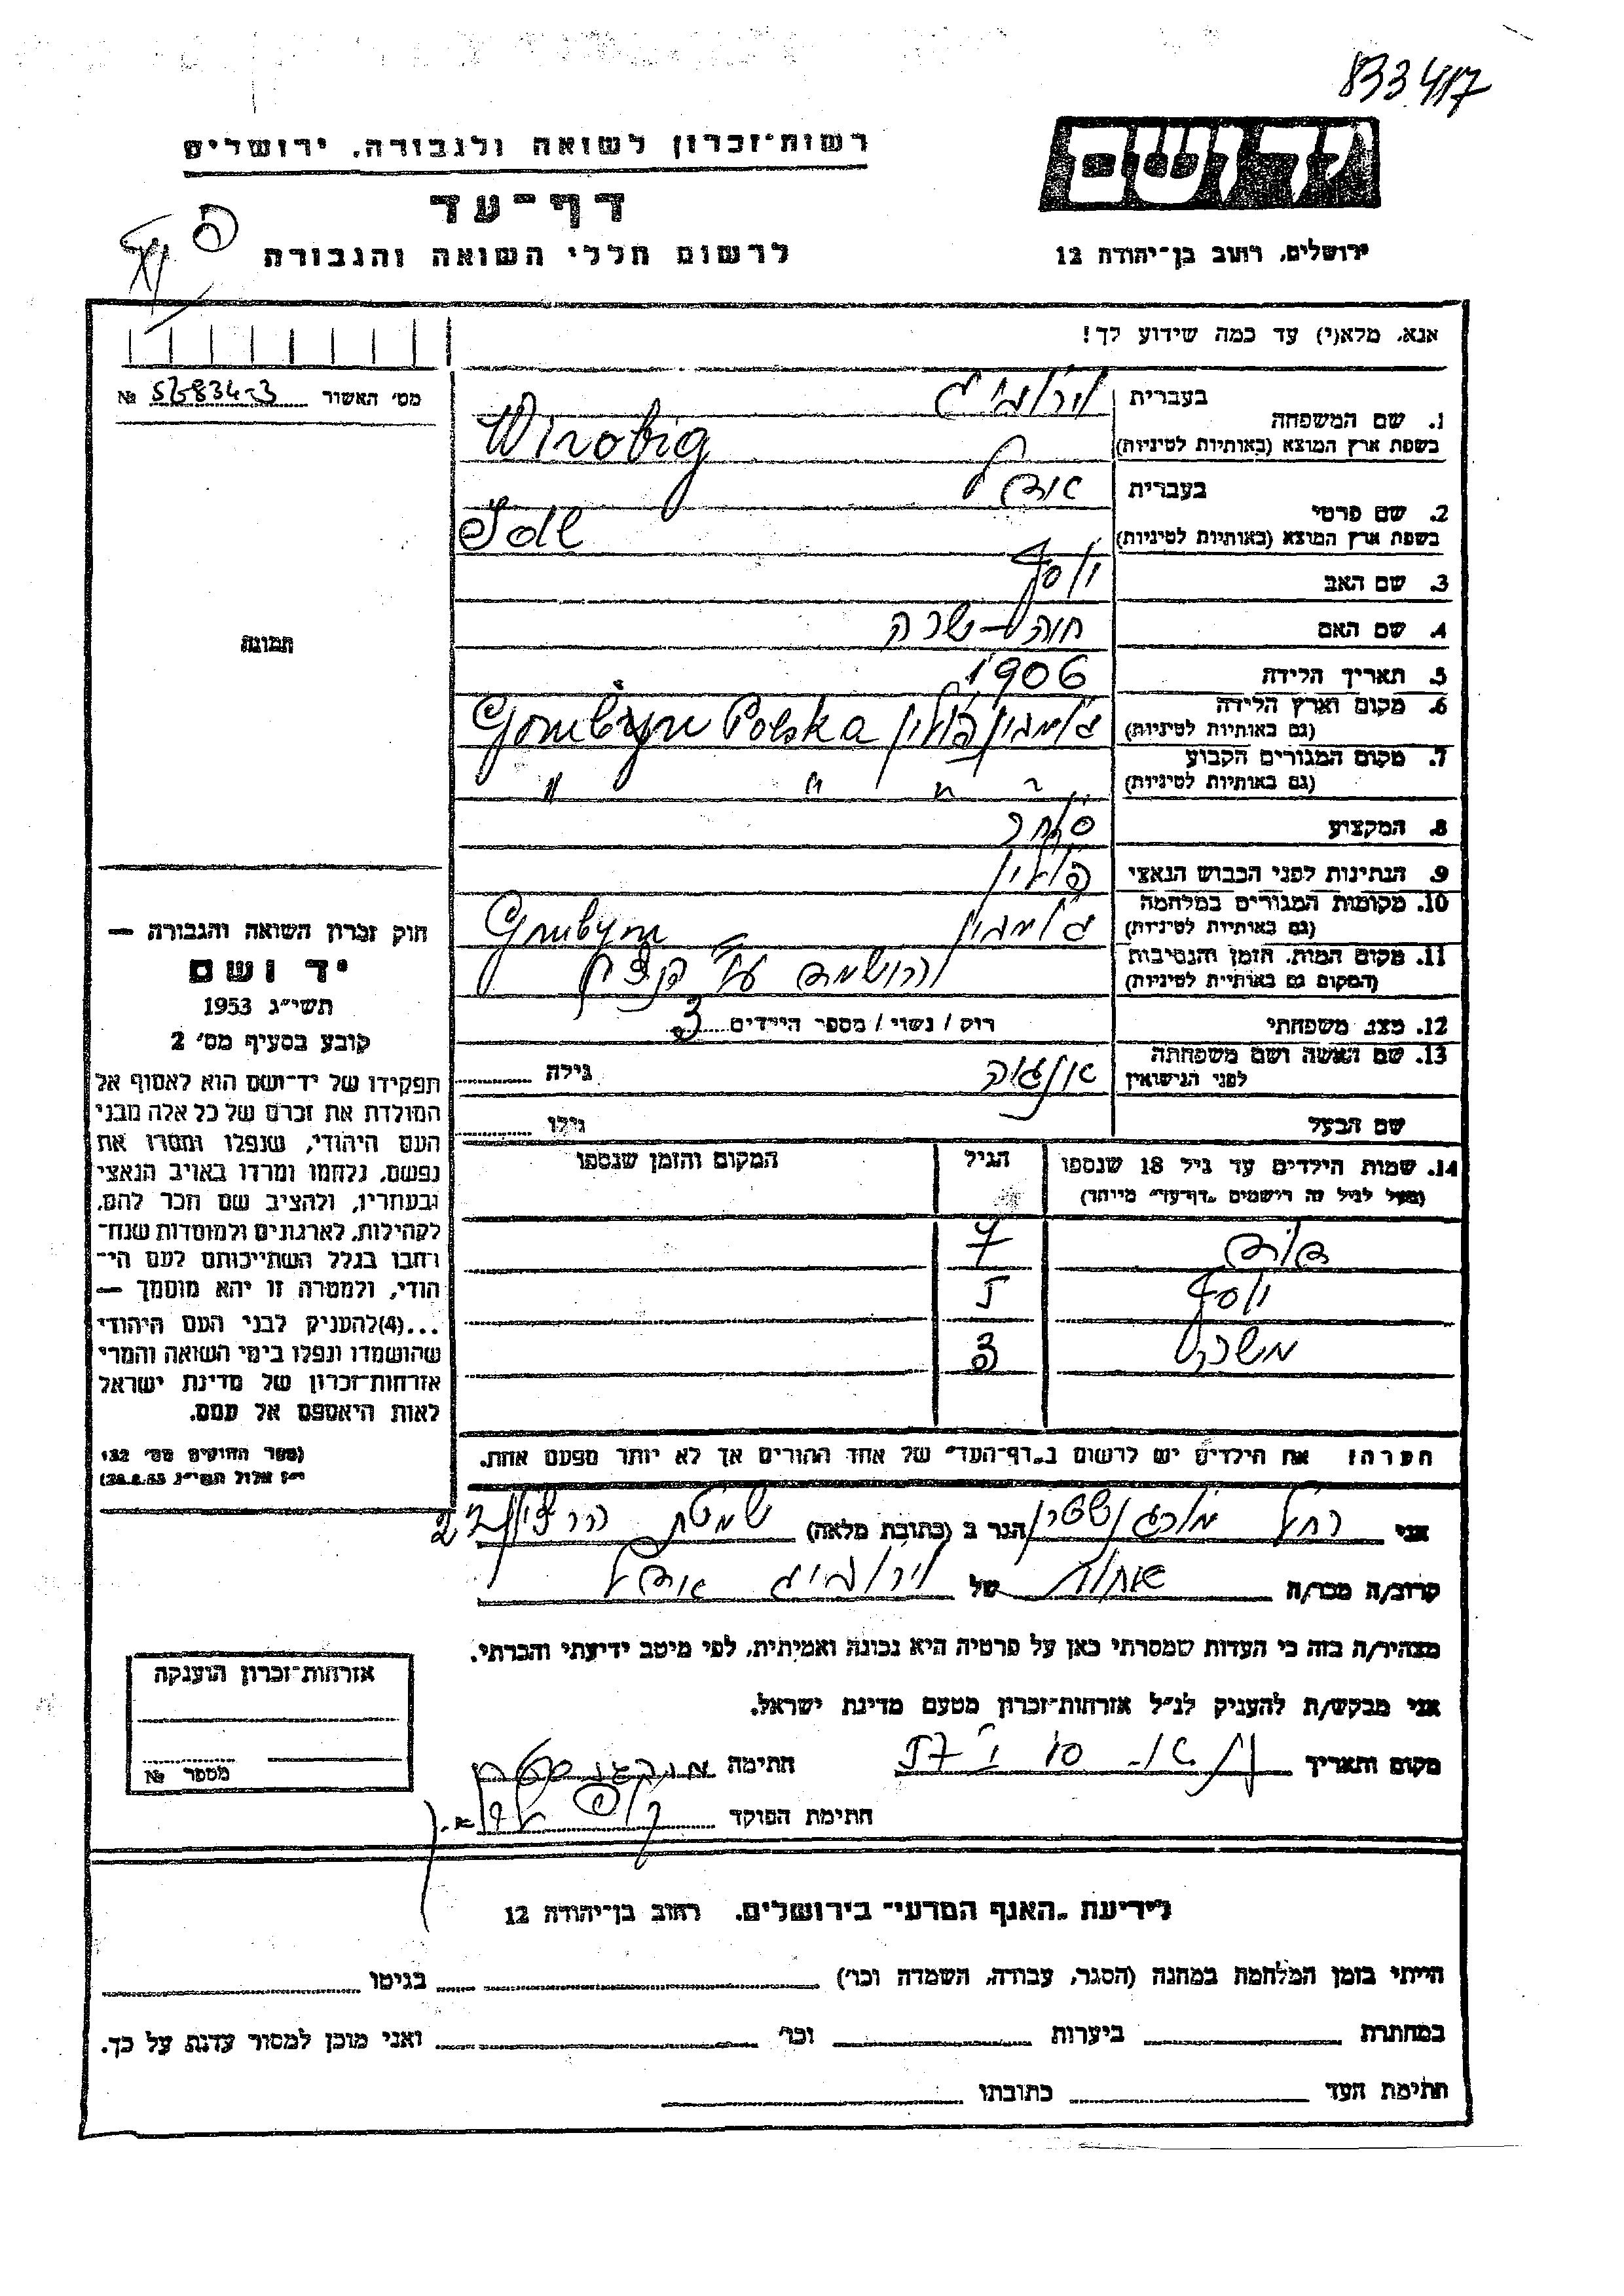 833417
יד ושם
רשות־זכרון לשואה ולגבורה, ירושלים
דף־עד
לרשום חללי השואה והגבורה
ירושלים, רחוב בן־יהודה 12
אנא, מלא(י) עד כמה שידוע לך!
מס׳ האשור №
1. שם המשפחה
בעברית
בשפת ארץ המוצא (באותיות לטיניות) Wirobig
2. שם פרטי
בעברית
בשפת ארץ המוצא (באותיות לטיניות) Idl
3. שם האב יוסף
4. שם האם חוה־שרה
5. תאריך הלידה 1906
6. מקום וארץ הלידה
(גם באותיות לטיניות) פולין Gombzyn Polska
7. מקום המגורים הקבוע
(גם באותיות לטיניות) " " " "
8. המקצוע סוחר
9. הנתינות לפני הכבוש הנאצי פולין
10. מקומות המגורים במלחמה
(גם באותיות לטיניות) Gombyn
11. מקום המות, הזמן והנסיבות
(המקום גם באותיות לטיניות) הושמד
12. מצב משפחתי רווק / נשוי / מספר הילדים 3
13. שם האשה ושם משפחתה
לפני הנישואין גילה
שם הבעל גילו
14. שמות הילדים עד גיל 18 שנספו הגיל המקום והזמן שנספו
(מעל לגיל זה רושמים „דף־עד" מיוחד)
7
יוסף 5
3
הערה: את הילדים יש לרשום ב„דף־העד" של אחד ההורים אך לא יותר מפעם אחת.
תמונה
חוק זכרון השואה והגבורה —
יד ושם
תשי״ג 1953
קובע בסעיף מס׳ 2
תפקידו של יד־ושם הוא לאסוף אל
המולדת את זכרם של כל אלה מבני
העם היהודי, שנפלו ומסרו את
נפשם, נלחמו ומרדו באויב הנאצי
ובעוזריו, ולהציב שם וזכר להם,
לקהילות, לארגונים ולמוסדות שנח־
רבו בגלל השתייכותם לעם הי־
הודי, ולמטרה זו יהא מוסמך —
...(4) להעניק לבני העם היהודי
שהושמדו ונפלו בימי השואה והמרי
אזרחות־זכרון של מדינת ישראל
לאות היאספם אל עמם.
(ספר החוקים מס׳ 132,
י״ז אלול תשי״ג 28.8.53)
אני רחל הגר ב (כתובת מלאה)
קרוב/ה מכר/ה אחות של
מצהיר/ה בזה כי העדות שמסרתי כאן על פרטיה היא נכונה ואמיתית, לפי מיטב ידיעתי והכרתי.
אני מבקש/ת להעניק לנ״ל אזרחות־זכרון מטעם מדינת ישראל.
מקום ותאריך חתימה
חתימת הפוקד
אזרחות־זכרון הוענקה
מספר №
לידיעת „האגף המדעי" בירושלים, רחוב בן־יהודה 12
הייתי בזמן המלחמה במחנה (הסגר, עבודה, השמדה וכו׳) בגיטו
במחתרת ביערות וכו׳ ואני מוכן למסור עדות על כך.
חתימת העד כתובתו